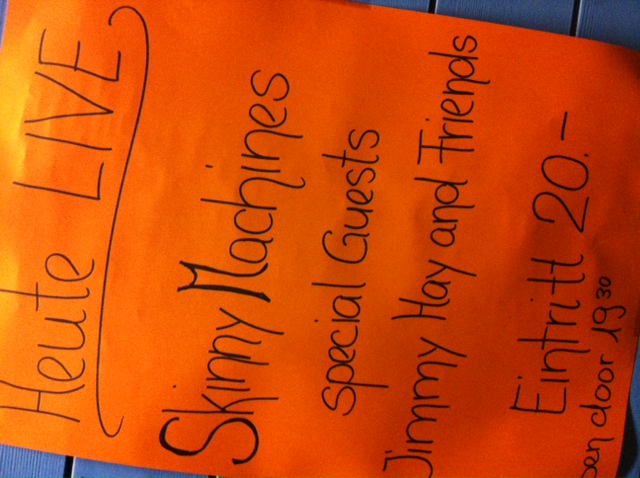 Heute LIVE
Skinny Machines
special Guests
Jimmy Hay and Friends
Eintritt 20.-
door 19 30